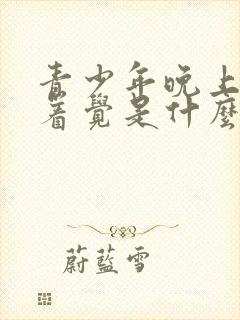 青少年晚上
着覺是什麼
蔚藍雪